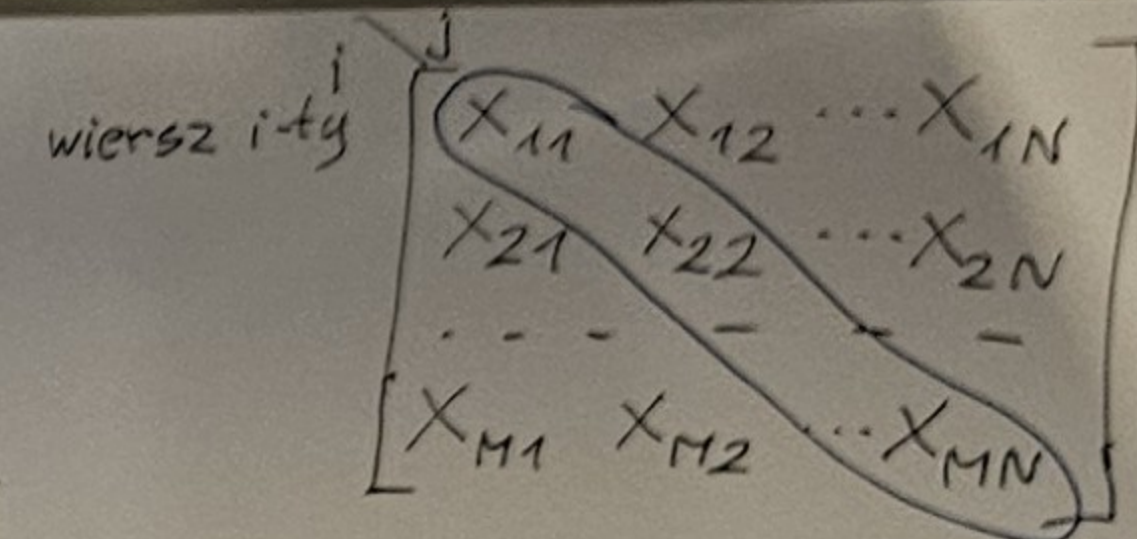 i \ j
wiersz i-ty
X11 X12 ... X1N
X21 X22 ... X2N
. - - - - -
XM1 XM2 ... XMN